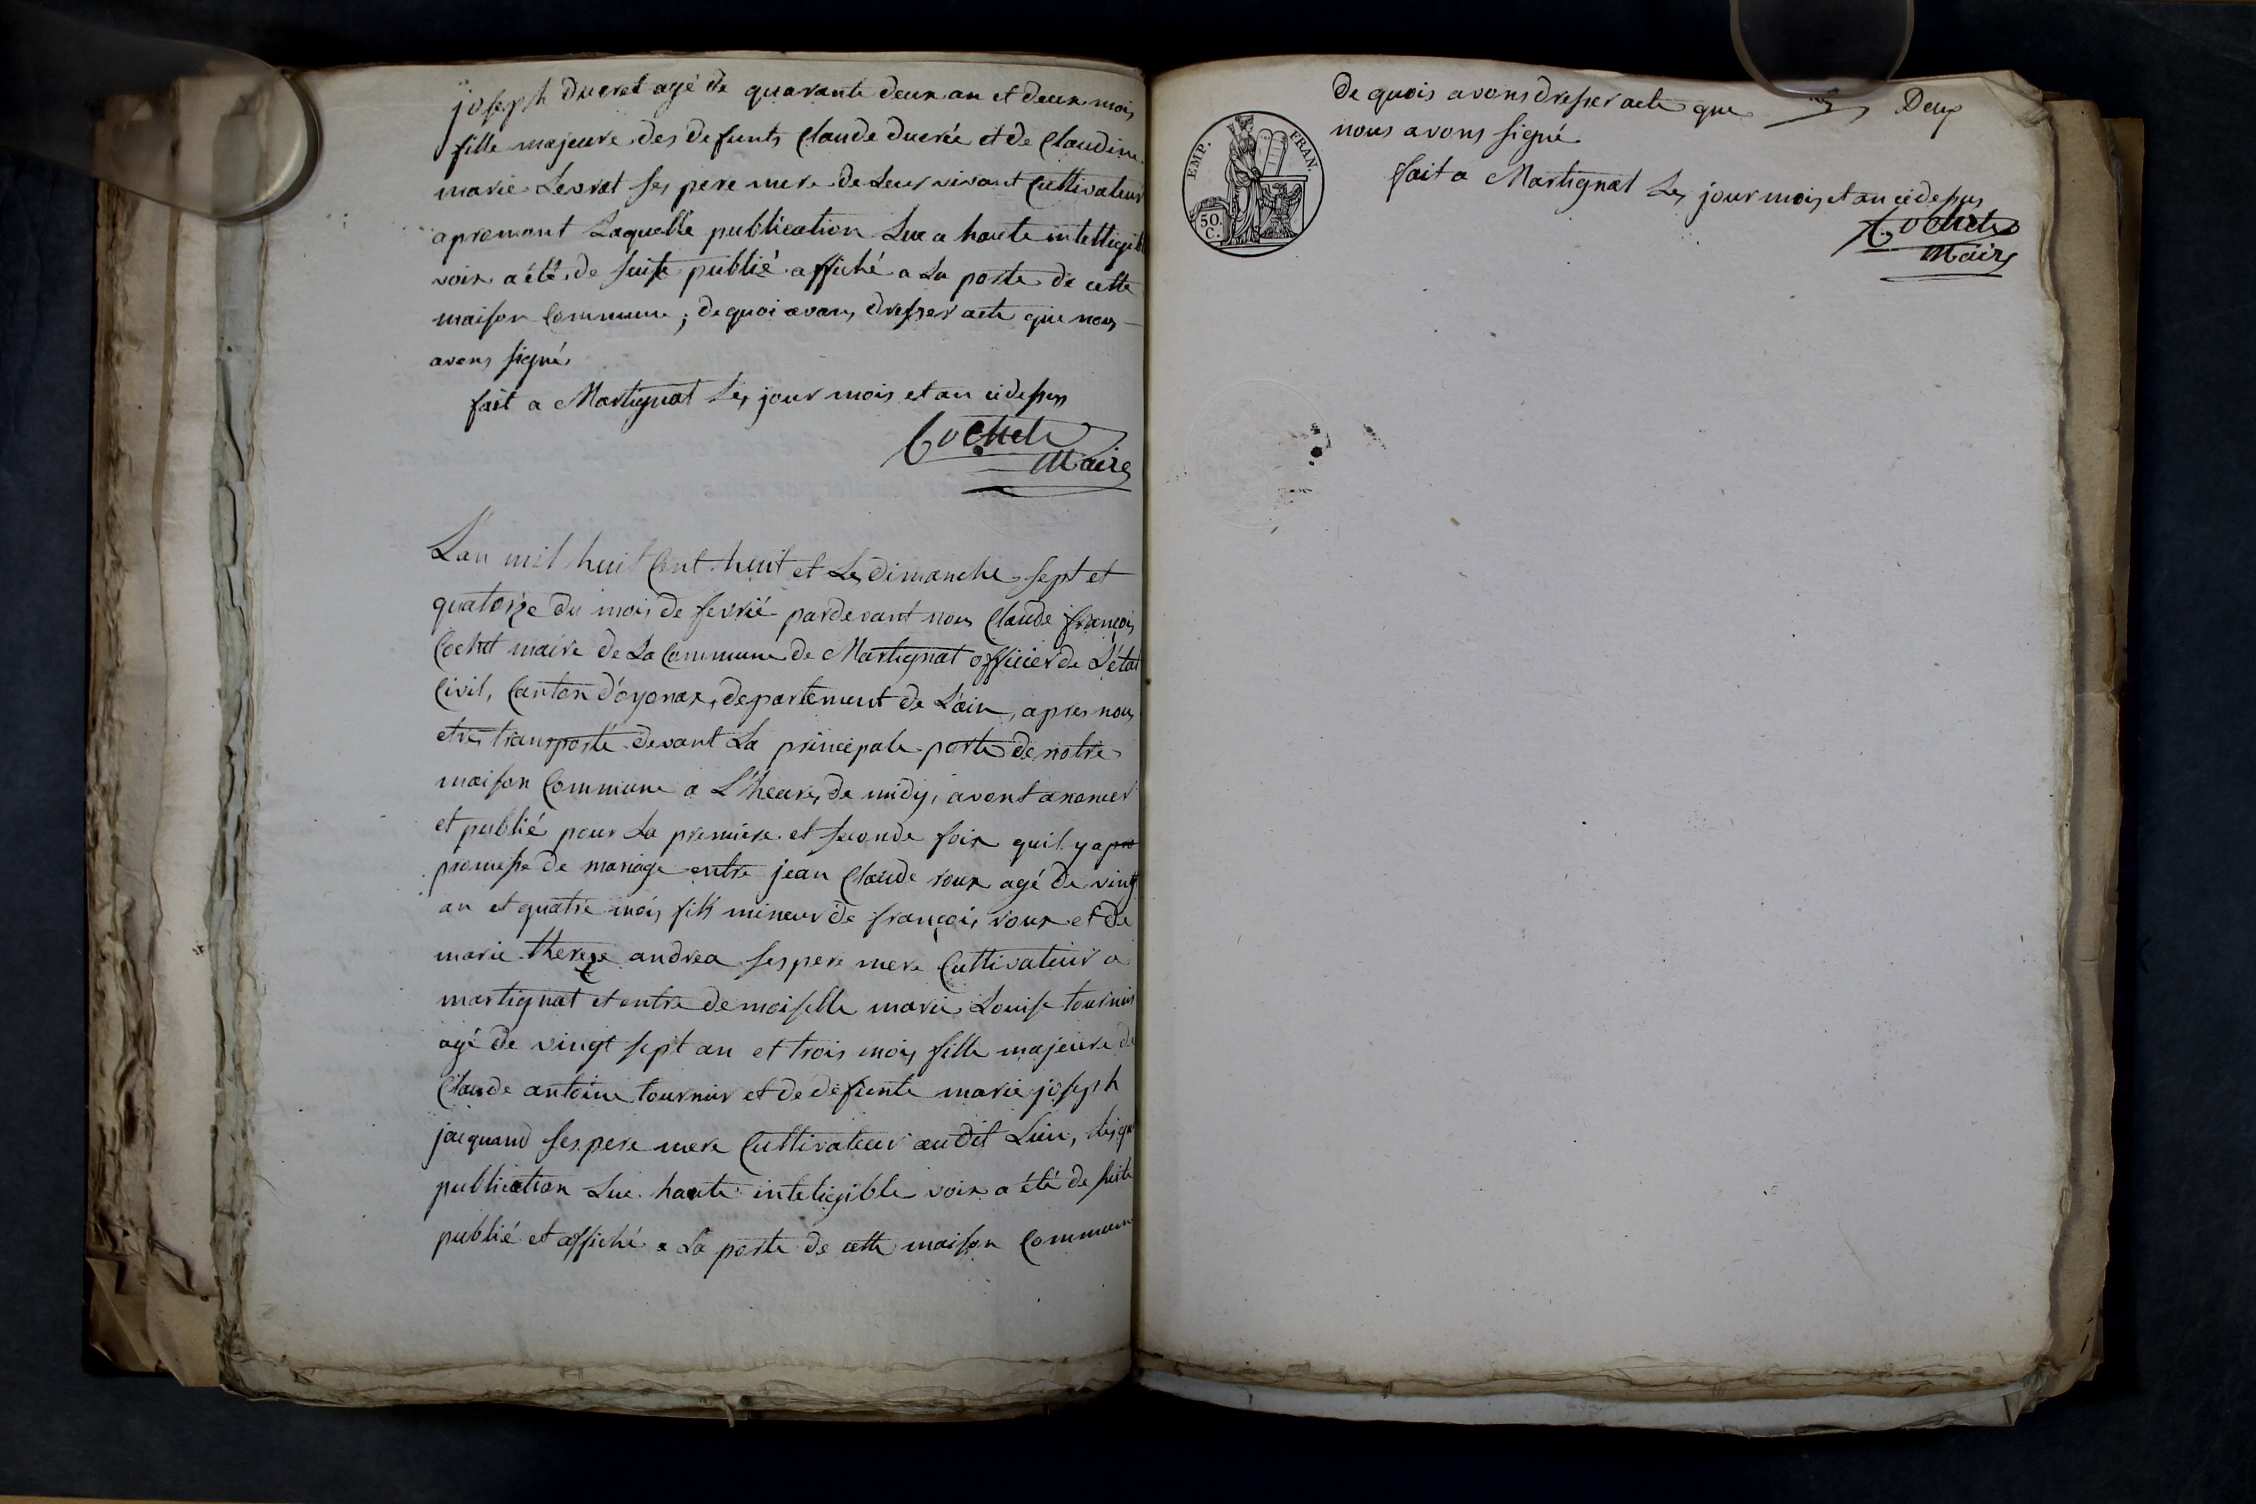 joseph ducret agé de quarante deux an et deux mois
fille majeure des defunts Claude ducrée et de Claudine
marie Levrat ses pere mere de Leur vivant Cultivateur
apremont Laquelle publication Lue a haute intelligib
voix a été de suite publié affiché a La porte de cette
maison Commune ; de quoi avons dresser acte que nous
avons signé
fait a Martignat Les jour mois et an ci dessus
Cochet
Maire
L'an mil huit Cent huit et Les dimanche sept et
quatorze du mois de fevrié pardevant nous Claude françois
Cochet maire de La Commune de Martignat officier de L'état
Civil, Canton d'oyonax, departement de L'ain, apres nous
etre transporté devant La principale porte de notre
maison Commune a L'heure de midy, avont anoncer
et publié pour La premiere et seconde fois quil y a pro
promesse de mariage entre jean Claude roux agé de vingt
an et quatre mois fils mineur de françois roux et de
marie thereze andrea ses pere mere Cultivateur a
martignat et entre demoiselle marie Louise tournier
agé de vingt sept an et trois mois fille majeure de
Claude antoine tournier et de defunte marie joseph
jacquand ses pere mere Cultivateur au dit Lieu,
publication Lue haute inteligible voix a été de suite
publié et affiché a La porte de cette maison Commune
EMP. FRAN.
50. C.
De quois avons dresser acte que Deux
nous avons signé
fait a Martignat Les jour mois et an ci dessus
Cochet
Maire